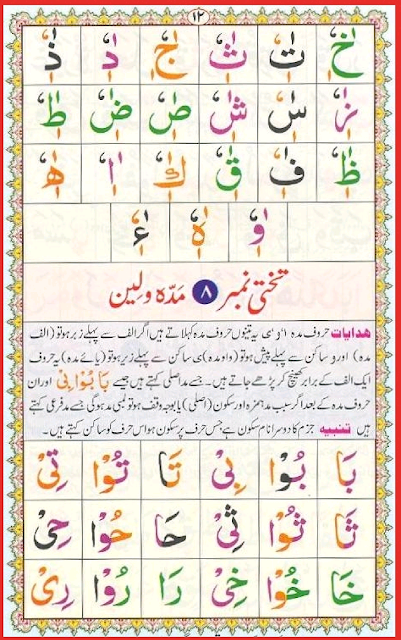 ١٢
خٰٖٗ تٰٖٗ ثٰٖٗ جٰٖٗ دٰٖٗ ذٰٖٗ
زٰٖٗ سٰٖٗ شٰٖٗ صٰٖٗ ضٰٖٗ طٰٖٗ
ظٰٖٗ فٰٖٗ قٰٖٗ كٰٖٗ اٰٖٗ هٰٖٗ
وٰٖٗ ہٰٖٗ ءٰٖٗ
تختی نمبر ۸ مَدّہ ولین
ھدایات حروف مدہ ا، و، ی یہ تینوں حروف مدہ کہلاتے ہیں اگر الف سے پہلے زبر ہو تو (الف
مدہ) اور و ساکن سے پہلے پیش ہو تو (واو مدہ) ی ساکن سے پہلے زیر ہو تو (یائے مدہ) یہ حروف
ایک الف کے برابر کھینچ کر پڑھے جاتے ہیں۔ جسے مد اصلی کہتے ہیں جیسے بَا بُوْا بِىْ اور ان
حروف مدہ کے بعد اگر سبب مد ہمزہ اور سکون (اصلی) یا بوجہ وقف ہو تو لمبی مد ہوگی جسے مد فرعی کہتے
ہیں تنبیہ جزم کا دوسرا نام سکون ہے جس حرف پر سکون ہو اس حرف کو ساکن کہتے ہیں۔
بَا بُوْا بِىْ تَا تُوْا تِىْ
ثَا ثُوْا ثِىْ حَا حُوْا حِىْ
خَا خُوْا خِىْ رَا رُوْا رِىْ